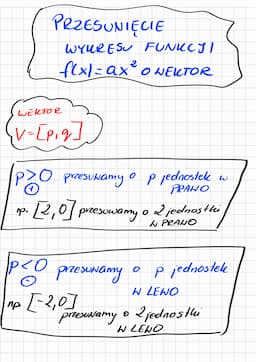 PRZESUNIĘCIE
WYKRESU FUNKCJI
f(x)=ax² O WEKTOR
WEKTOR
V=[p,q]
p>0 przesuwamy o p jednostek w
+ PRAWO
np. [2,0] przesuwamy o 2 jednostki
W PRAWO
p<0 przesuwamy o p jednostek
- W LEWO
np. [-2,0]
przesuwamy o 2 jednostki
W LEWO